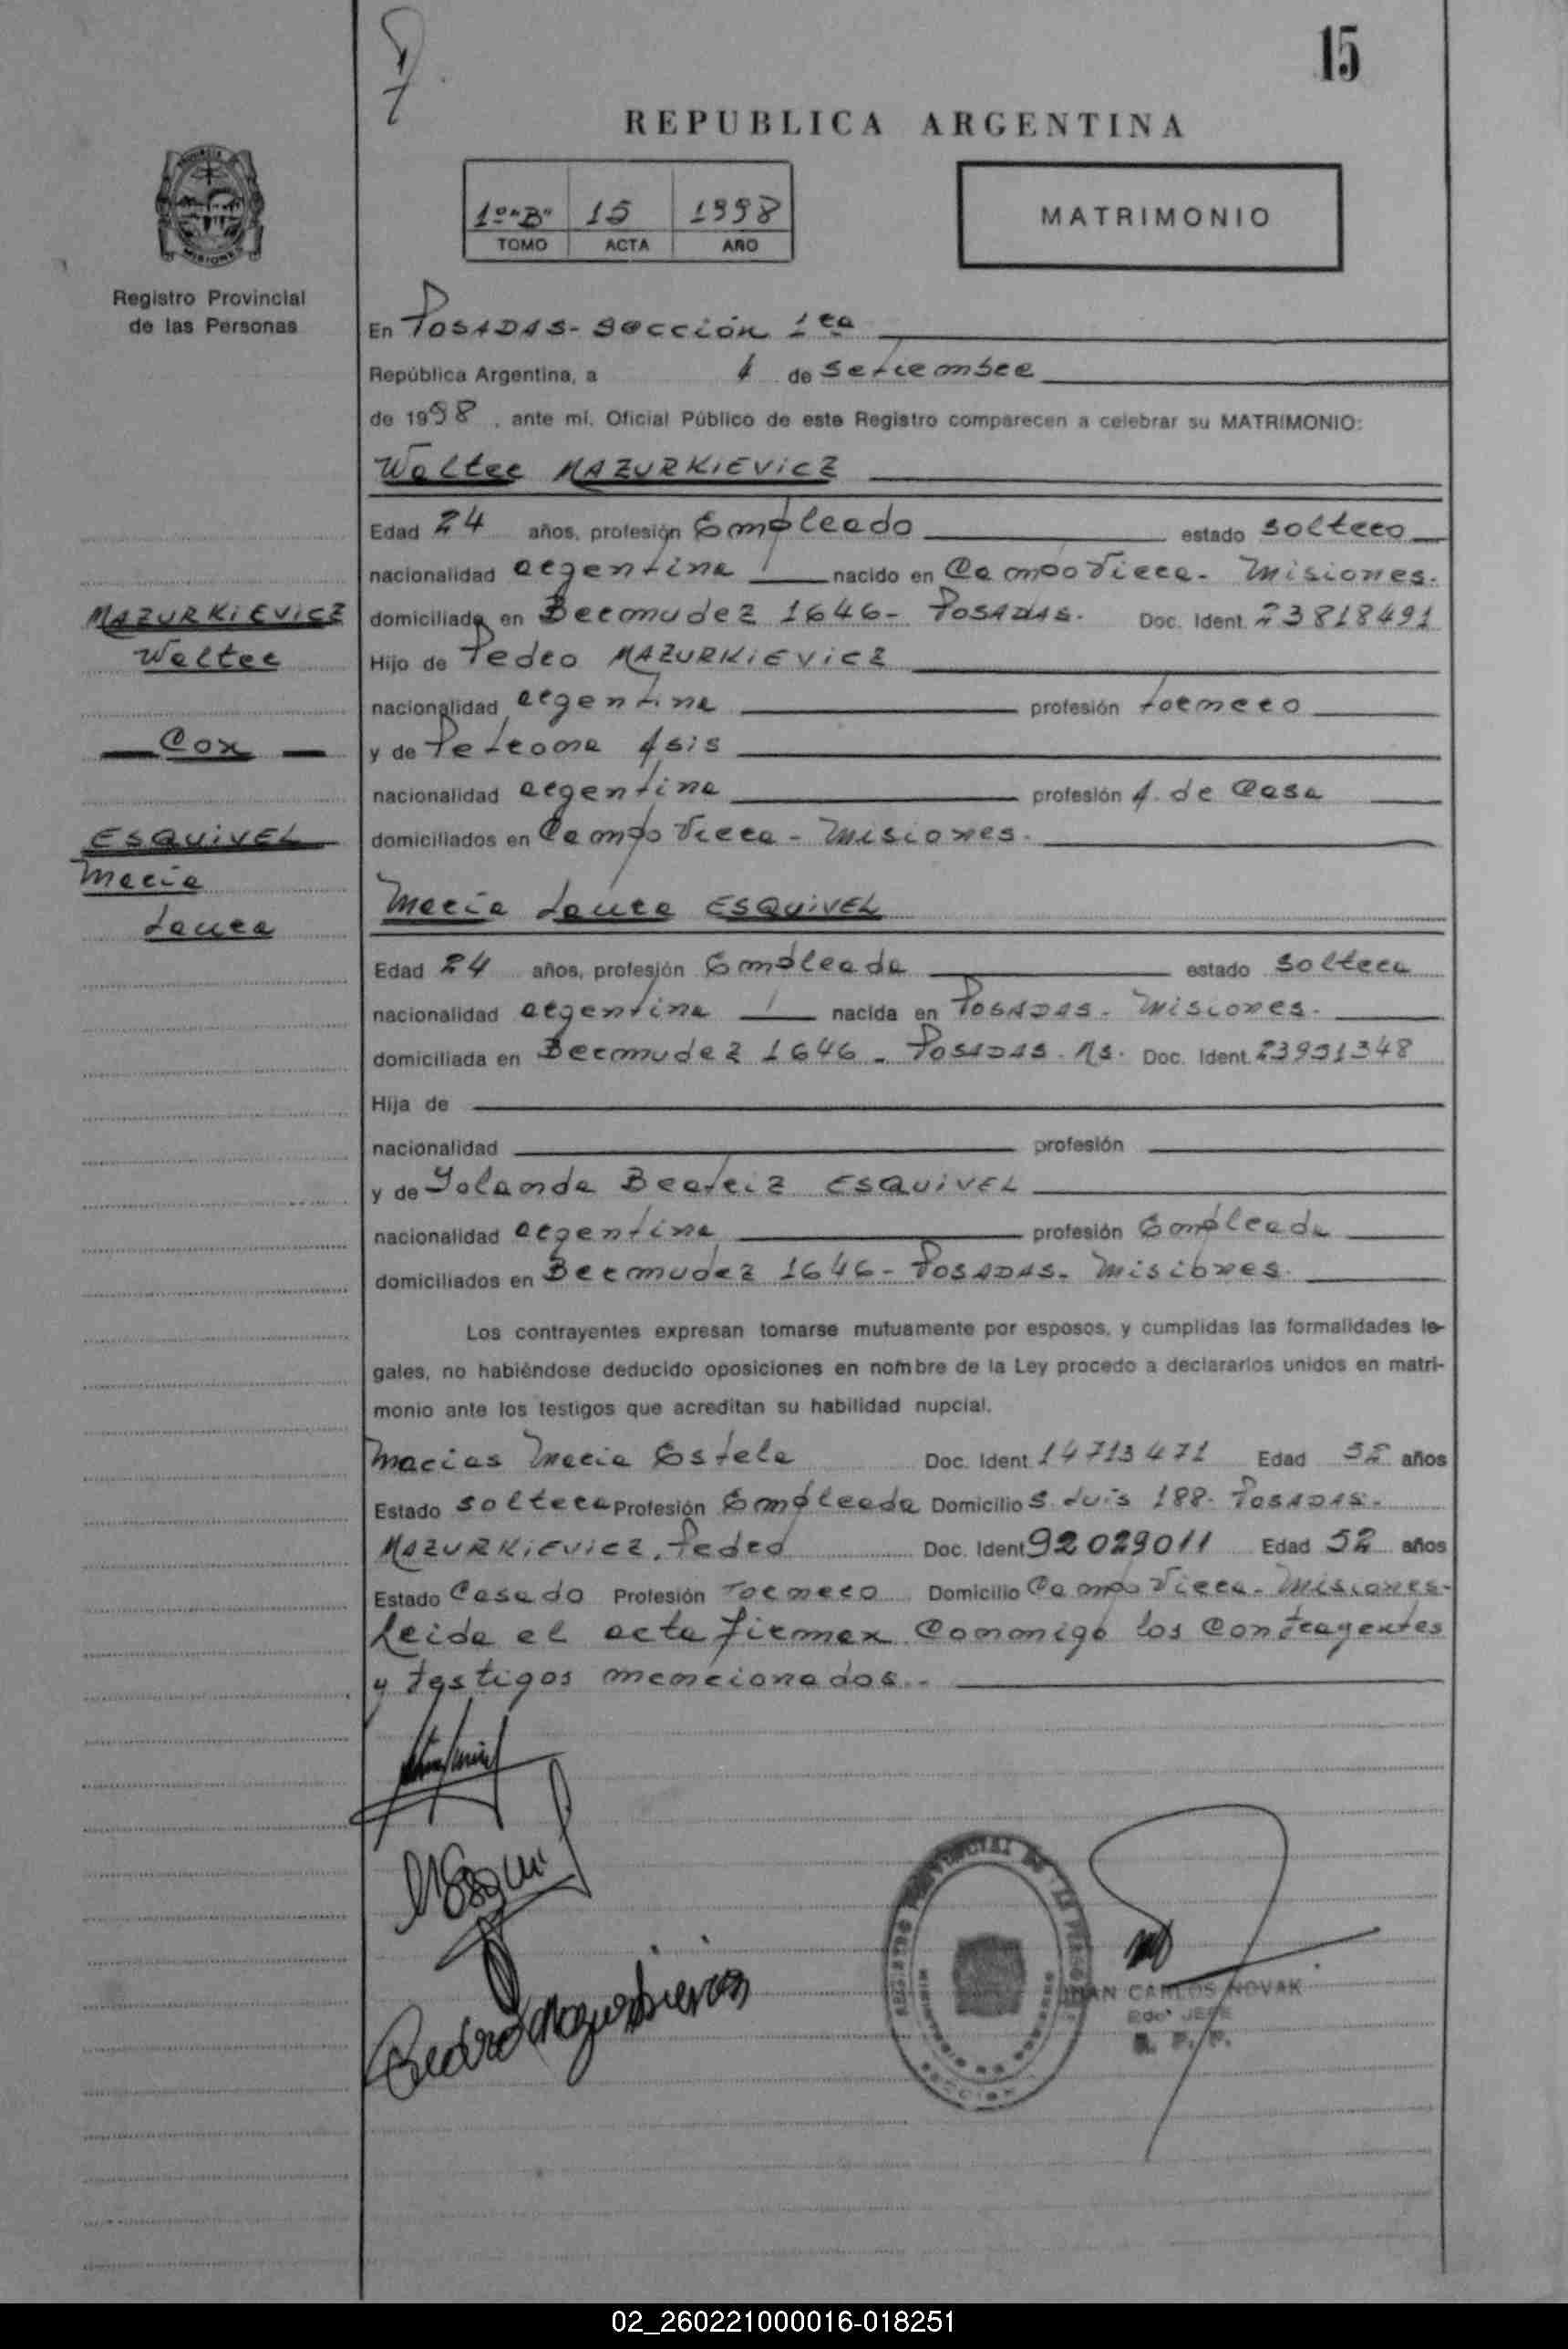 15
REPUBLICA ARGENTINA
1º "B" 15 1998
TOMO ACTA AÑO
MATRIMONIO
Registro Provincial
de las Personas
En POSADAS - Sección 1ra
República Argentina, a 1 de Setiembre
de 1998, ante mí, Oficial Público de este Registro comparecen a celebrar su MATRIMONIO:
Walter MAZURKIEVICZ
Edad 24 años, profesión Empleado estado soltero
nacionalidad argentina nacido en Campo Viera - Misiones.
MAZURKIEVICZ
Walter
Con
ESQUIVEL
María
Laura
domiciliado en Bermudez 1646 - POSADAS. Doc. Ident. 23818491
Hijo de Pedro MAZURKIEVICZ
nacionalidad argentina profesión tornero
y de Petrona Asis
nacionalidad argentina profesión A. de Casa
domiciliados en Campo Viera - Misiones.
María Laura ESQUIVEL
Edad 24 años, profesión Empleada estado soltera
nacionalidad argentina nacida en POSADAS - Misiones.
domiciliada en Bermudez 1646 - POSADAS. Ms. Doc. Ident. 23951348
Hija de
nacionalidad profesión
y de Yolanda Beatriz ESQUIVEL
nacionalidad argentina profesión Empleada
domiciliados en Bermudez 1646 - POSADAS - Misiones
Los contrayentes expresan tomarse mutuamente por esposos, y cumplidas las formalidades le-
gales, no habiéndose deducido oposiciones en nombre de la Ley procedo a declararlos unidos en matri-
monio ante los testigos que acreditan su habilidad nupcial.
Macias María Estela Doc. Ident. 14713471 Edad años
Estado soltera Profesión Empleada Domicilio S. Luis 188. POSADAS.
MAZURKIEVICZ, Pedro Doc. Ident 92029011 Edad 52 años
Estado Casado Profesión Tornero Domicilio Campo Viera - Misiones-
Leida el acta firman conmigo los contrayentes
y testigos mencionados.-
Pedro Mazurkievicz
REGISTRO PROVINCIAL DE LAS PERSONAS
JUAN CARLOS NOVAK
JEFE
02_260221000016-018251